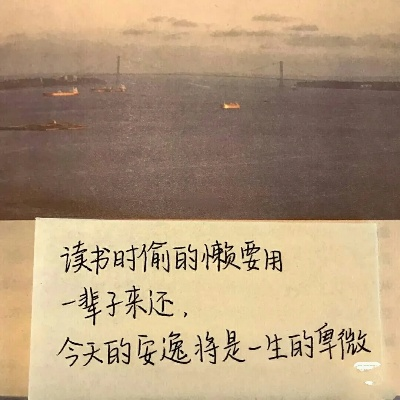 读书时偷的懒要用
一辈子来还,
今天的安逸将是一生的卑微